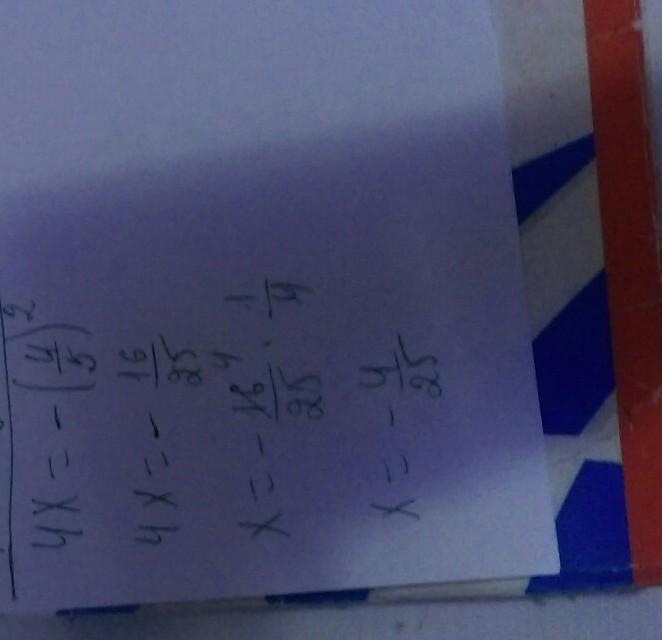 4x = -(4/5)²
4x = - 16/25
x = - 16/25 4 · 1/4
x = - 4/25